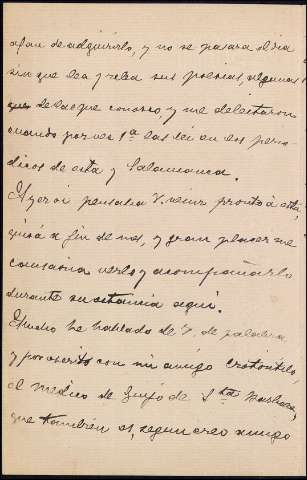 afan de adquirirlo, y no se pasara el dia
sin que lea y relea sus poesias, algunas
de las que conosco y me deleitaron
cuando por vez 1ª las leí en los perio-
dicos de esta y Salamanca.
Ayer oi pensaba V. venir pronto á esta,
quizá á fin de mes, y gran placer me
causaria verlo y acompañarlo
durante su estancia aqui.
Mucho he hablado de V. de palabra
y por escrito con mi amigo
el Medico de Guijo de Sta Barbara,
que también es, segun creo amigo